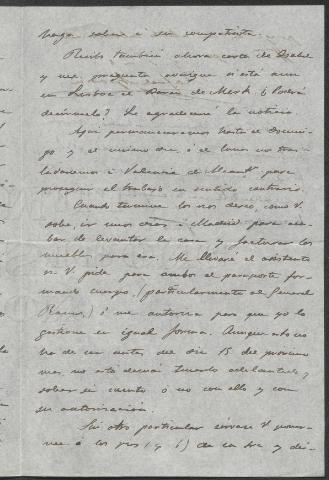 haga saber a su compatriota.
Recibo también ahora carta de Isabel
y me pregunta averigüe si está aun
en Lisboa el Barón de Merk ¿Podrá
decírmelo? Le agradeceré la noticia.
Aquí permaneceremos hasta el Domin-
go y el mismo día, ó el lunes nos tras-
ladaremos a Valencia de Alcantª para
proseguir el trabajo en sentido contrario.
Cuando termine los ríos deseo, como V.
sabe, ir unos días a Madrid para aca-
bar de levantar la casa y facturar los
muebles para esa. Me llevaré el asistente
si V. pide para ambos el pasaporte for-
mando cuerpo, (particularmente al General
) ó me autoriza para que yo lo
gestione en igual forma. Aunque esto no
ha de ser antes del día 15 del próximo
mes, no está demás tenerlo adelantado y
saber si cuento ó no con ello y con
su autorización.
Sin otro particular sírvase V. poner-
me á los pies (q. b.) de su Sra y